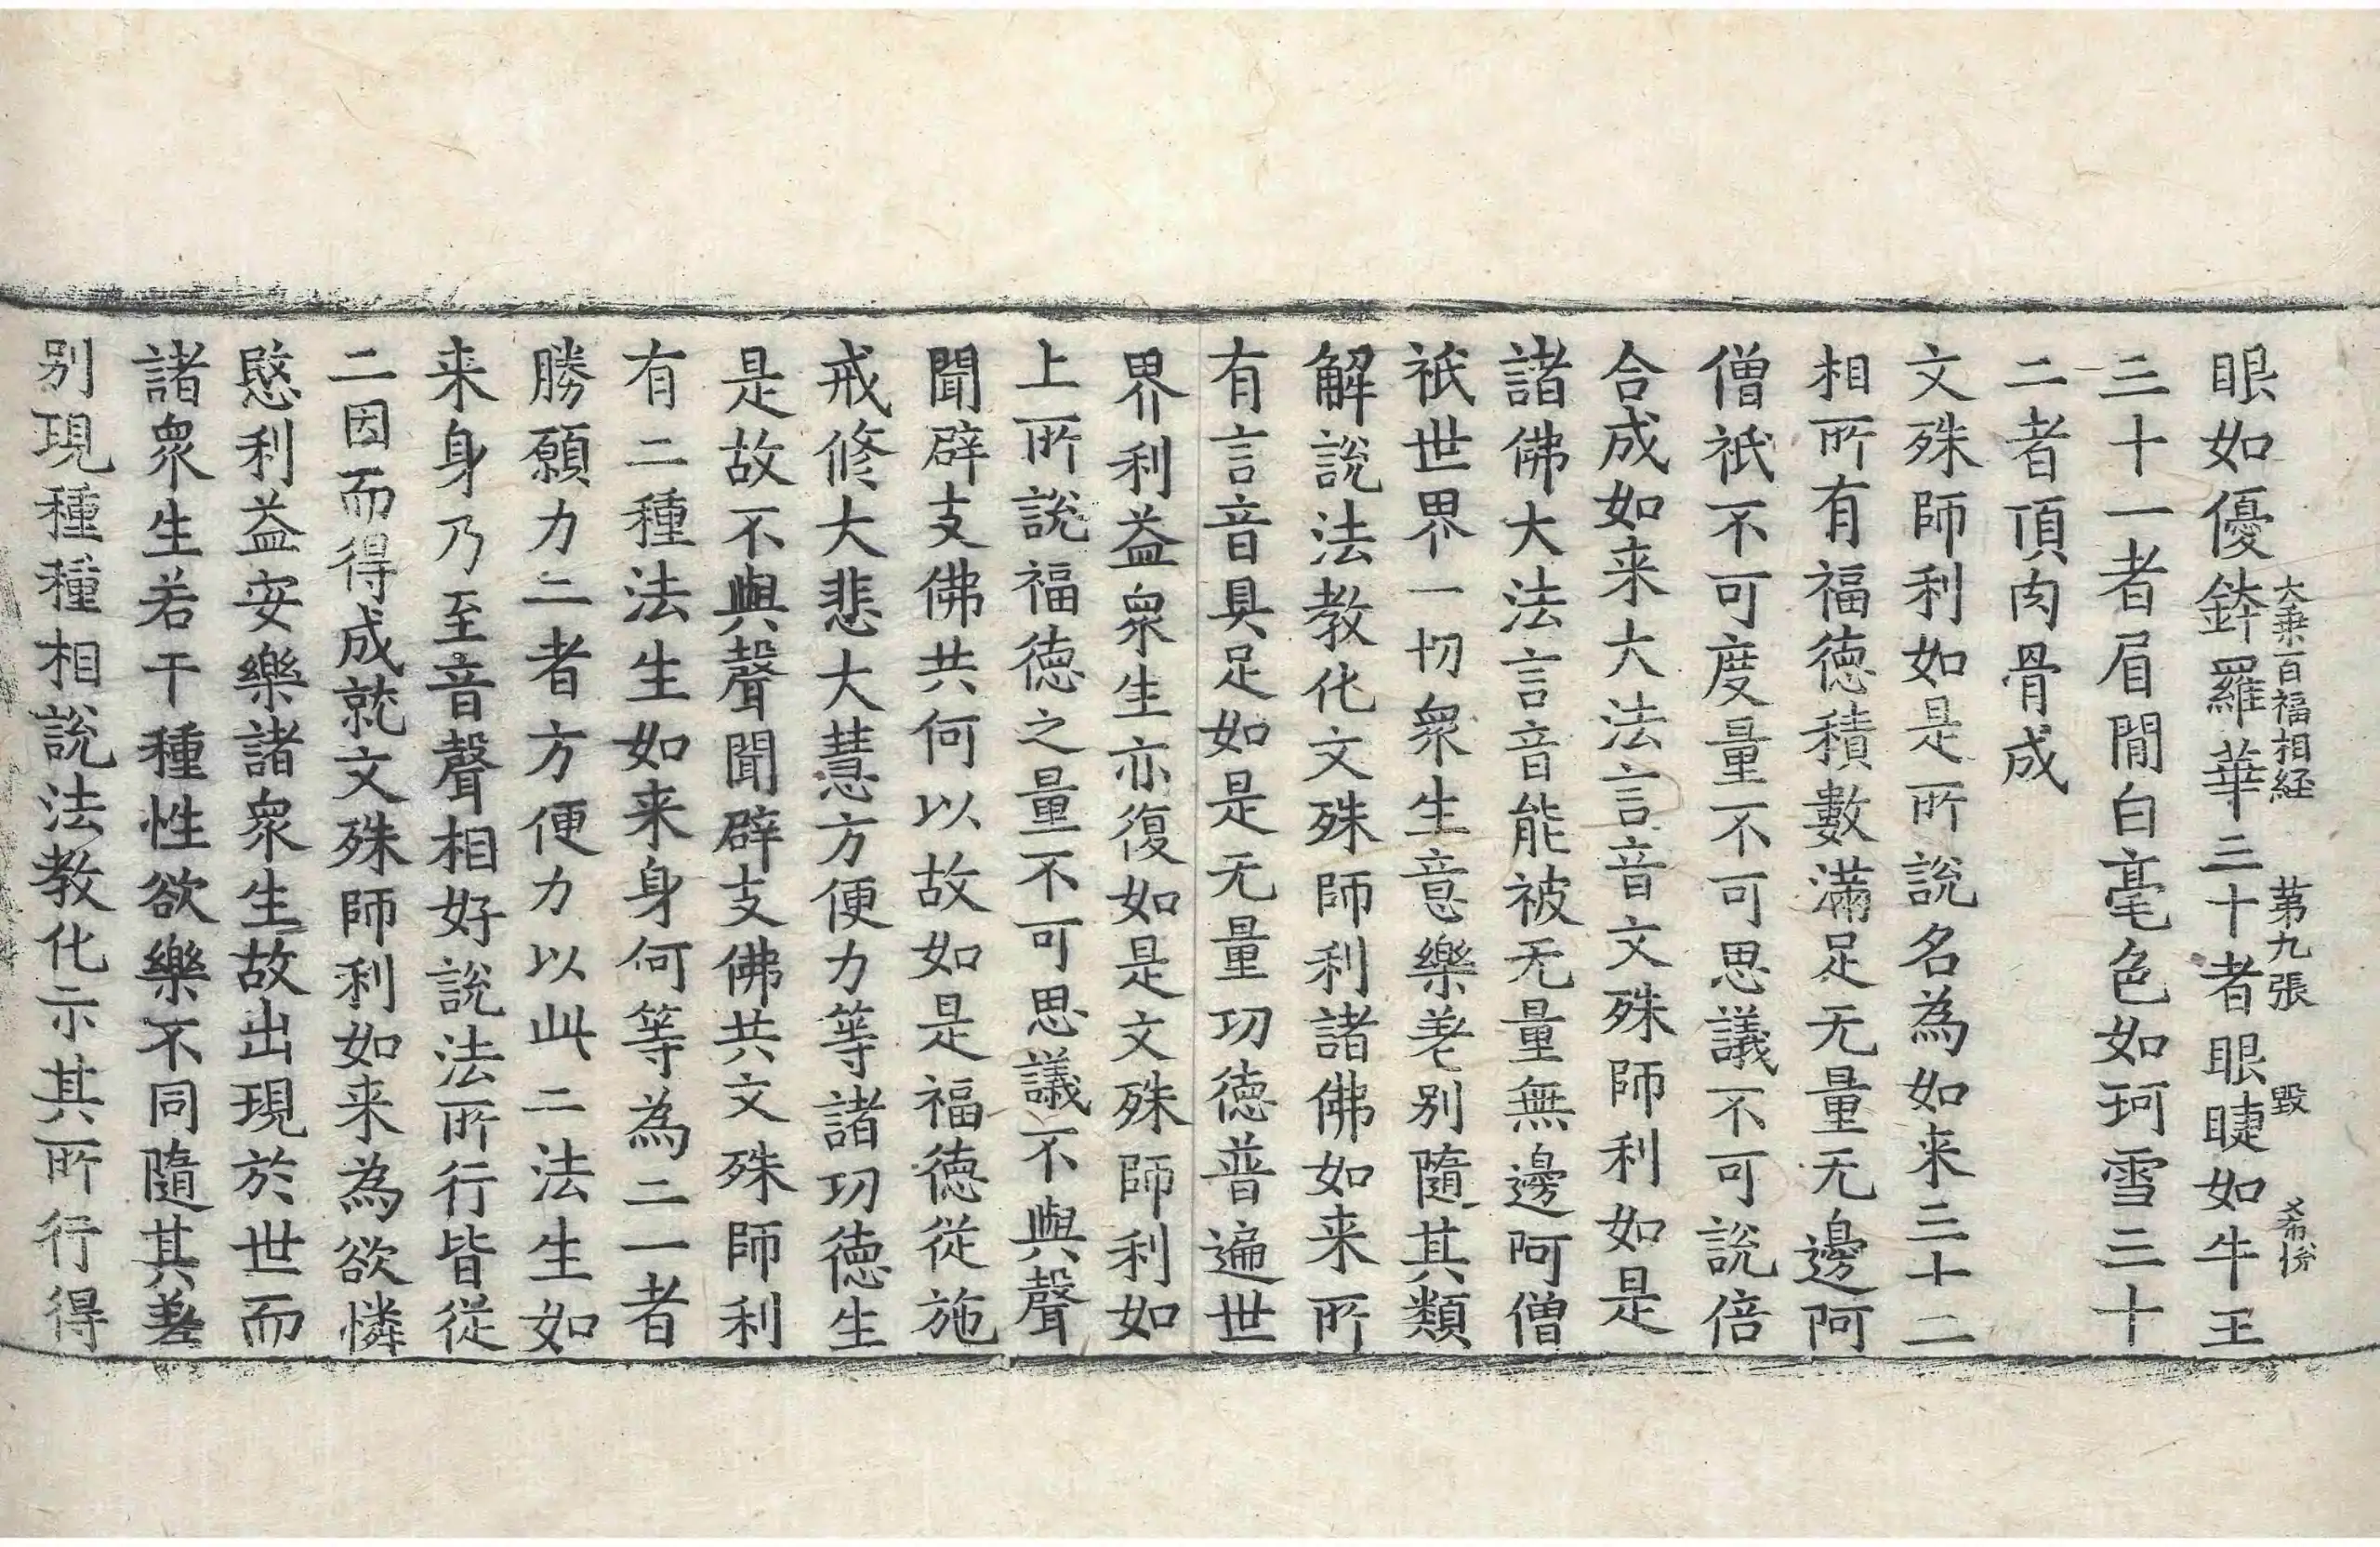 大乗百福相経 第九張 毀 希 
眼如優鉢羅華三十者眼睫如牛王
三十一者眉閒白毫色如珂雪三十
二者頂肉骨成
文殊師利如是所說名為如来三十二
相所有福德積數滿足无量无邊阿
僧祇不可度量不可思議不可說倍
合成如来大法言音文殊師利如是
諸佛大法言音能被无量無邊阿僧
祇世界一切衆生意樂差別隨其類
解說法教化文殊師利諸佛如来所
有言音具足如是无量功德普遍世
界利益衆生亦復如是文殊師利如
上所說福德之量不可思議不與聲
聞辟支佛共何以故如是福德從施
戒修大悲大慧方便力等諸功德生
是故不與聲聞辟支佛共文殊師利
有二種法生如来身何等為二一者
勝願力二者方便力以此二法生如
来身乃至音聲相好說法所行皆從
二因而得成就文殊師利如来為欲憐
愍利益安樂諸衆生故出現於世而
諸衆生若干種性欲樂不同隨其差
別現種種相說法教化示其所行得